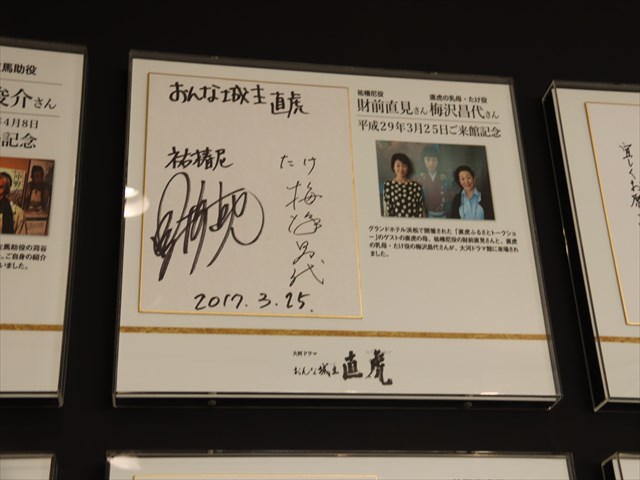 馬助役
俊介さん
年4月8日
記念
左馬助役の苅谷
ご自身の紹介
いました。
おんな城主 直虎
祐椿尼
たけ
梅沢昌代
2017.3.25.
祐椿尼役
財前直見さん
直虎の乳母・たけ役
梅沢昌代さん
平成29年3月25日ご来館記念
グランドホテル浜松で開催された「直虎ふるさとトークショ
ー」のゲストの直虎の母、祐椿尼役の財前直見さんと、直虎
の乳母・たけ役の梅沢昌代さんが、大河ドラマ館に来場され
ました。
大河ドラマ
おんな城主 直虎